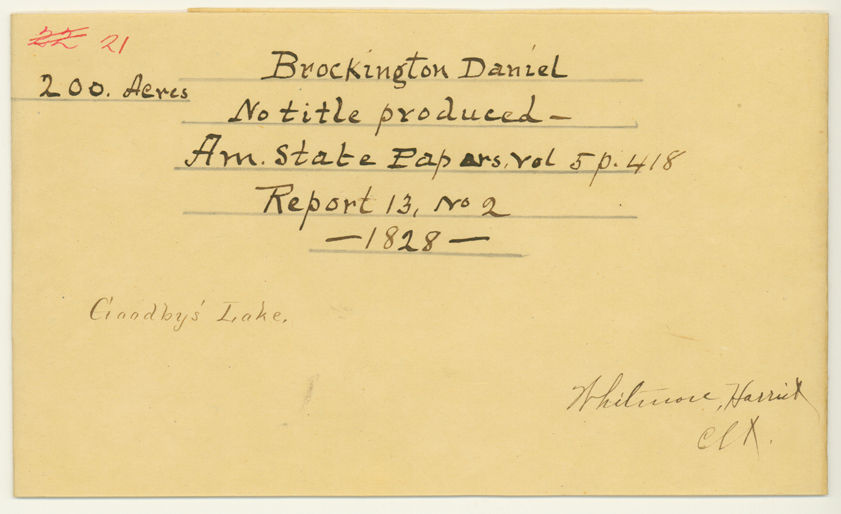 22 21
Brockington Daniel
200. Acres
No title produced —
Am. State Papers, vol 5 p. 418
Report 13, No 2
— 1828 —
Goodby's Lake.
Whitmore, Harriet